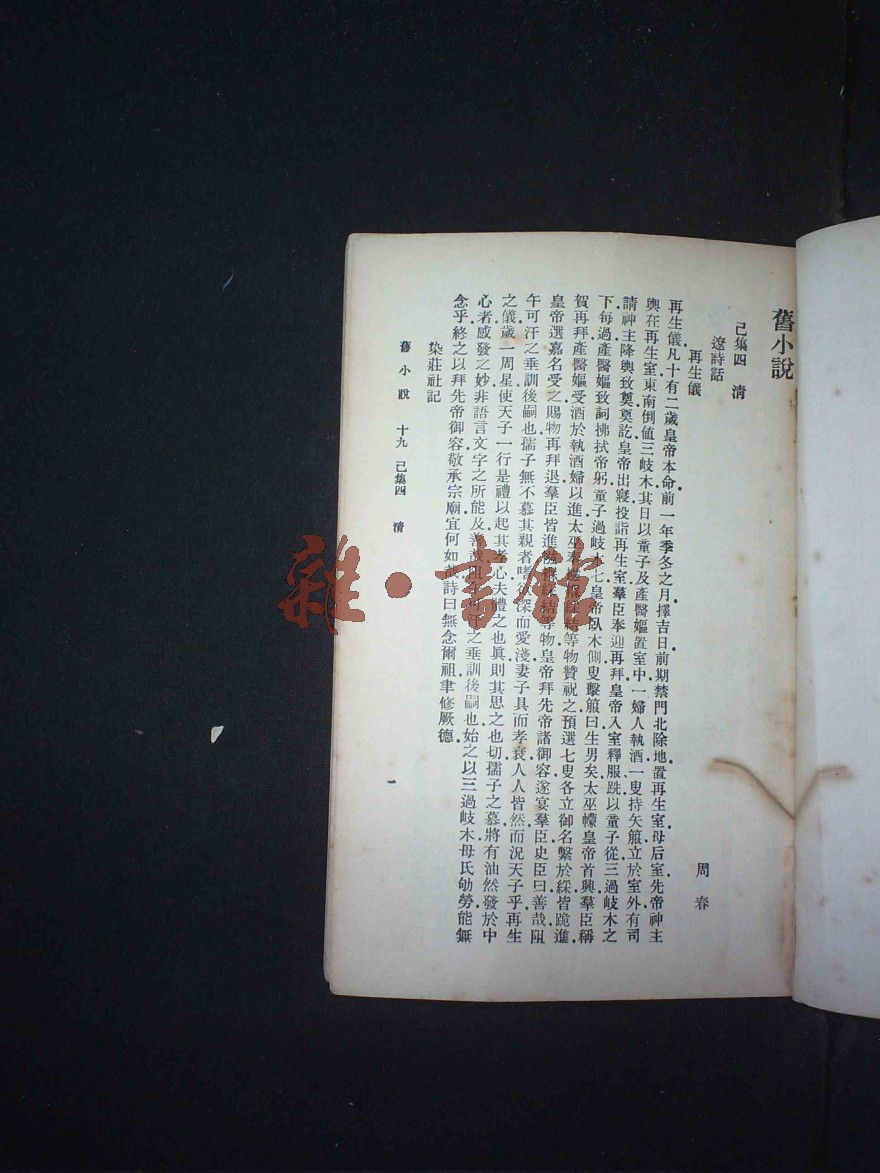 舊小說
己集四　清
遼詩話
再生儀　周春
再生儀凡十有二歲皇帝本命前一年季冬之月擇吉日前期禁門北除地置再生室母后室先帝神主
輿在再生室東南倒値三岐木其日以童子及產醫嫗置室中一婦人執酒一叟持矢箙立於室外有司
請神主降輿致奠奠訖皇帝出寢殿詣再生室羣臣奉迎再拜皇帝入室釋服跣以童子從三過岐木之
下每過產醫嫗致詞拂拭帝躬童子過岐木七皇帝臥木側叟擊箙曰生男矣太巫幪皇帝首興羣臣稱
賀再拜產醫嫗受酒於執酒婦以進太巫奉襁褓綵結等物贊祝之預選七叟各立御名繫於綵皆跪進
皇帝選嘉名受之賜物再拜退羣臣皆進襁褓綵結等物皇帝拜先帝諸御容遂宴羣臣史臣曰善哉阻
午可汗之垂訓後嗣也孺子無不慕其親者嗜欲深而愛淺妻子具而孝衰人人皆然而況天子乎再生
之儀歲一周星使天子一行是禮以起其孝心夫體之也眞則其思之也切孺子之慕將有油然發於中
心者感發之妙非語言文字之所能及善哉阻午可汗之垂訓後嗣也始之以三過岐木母氏劬勞能無
念乎終之以拜先帝御容敬承宗廟宜何如哉詩曰無念爾祖聿修厥德
染莊社記
舊小說　十九　己集四　清　一
雜·書館